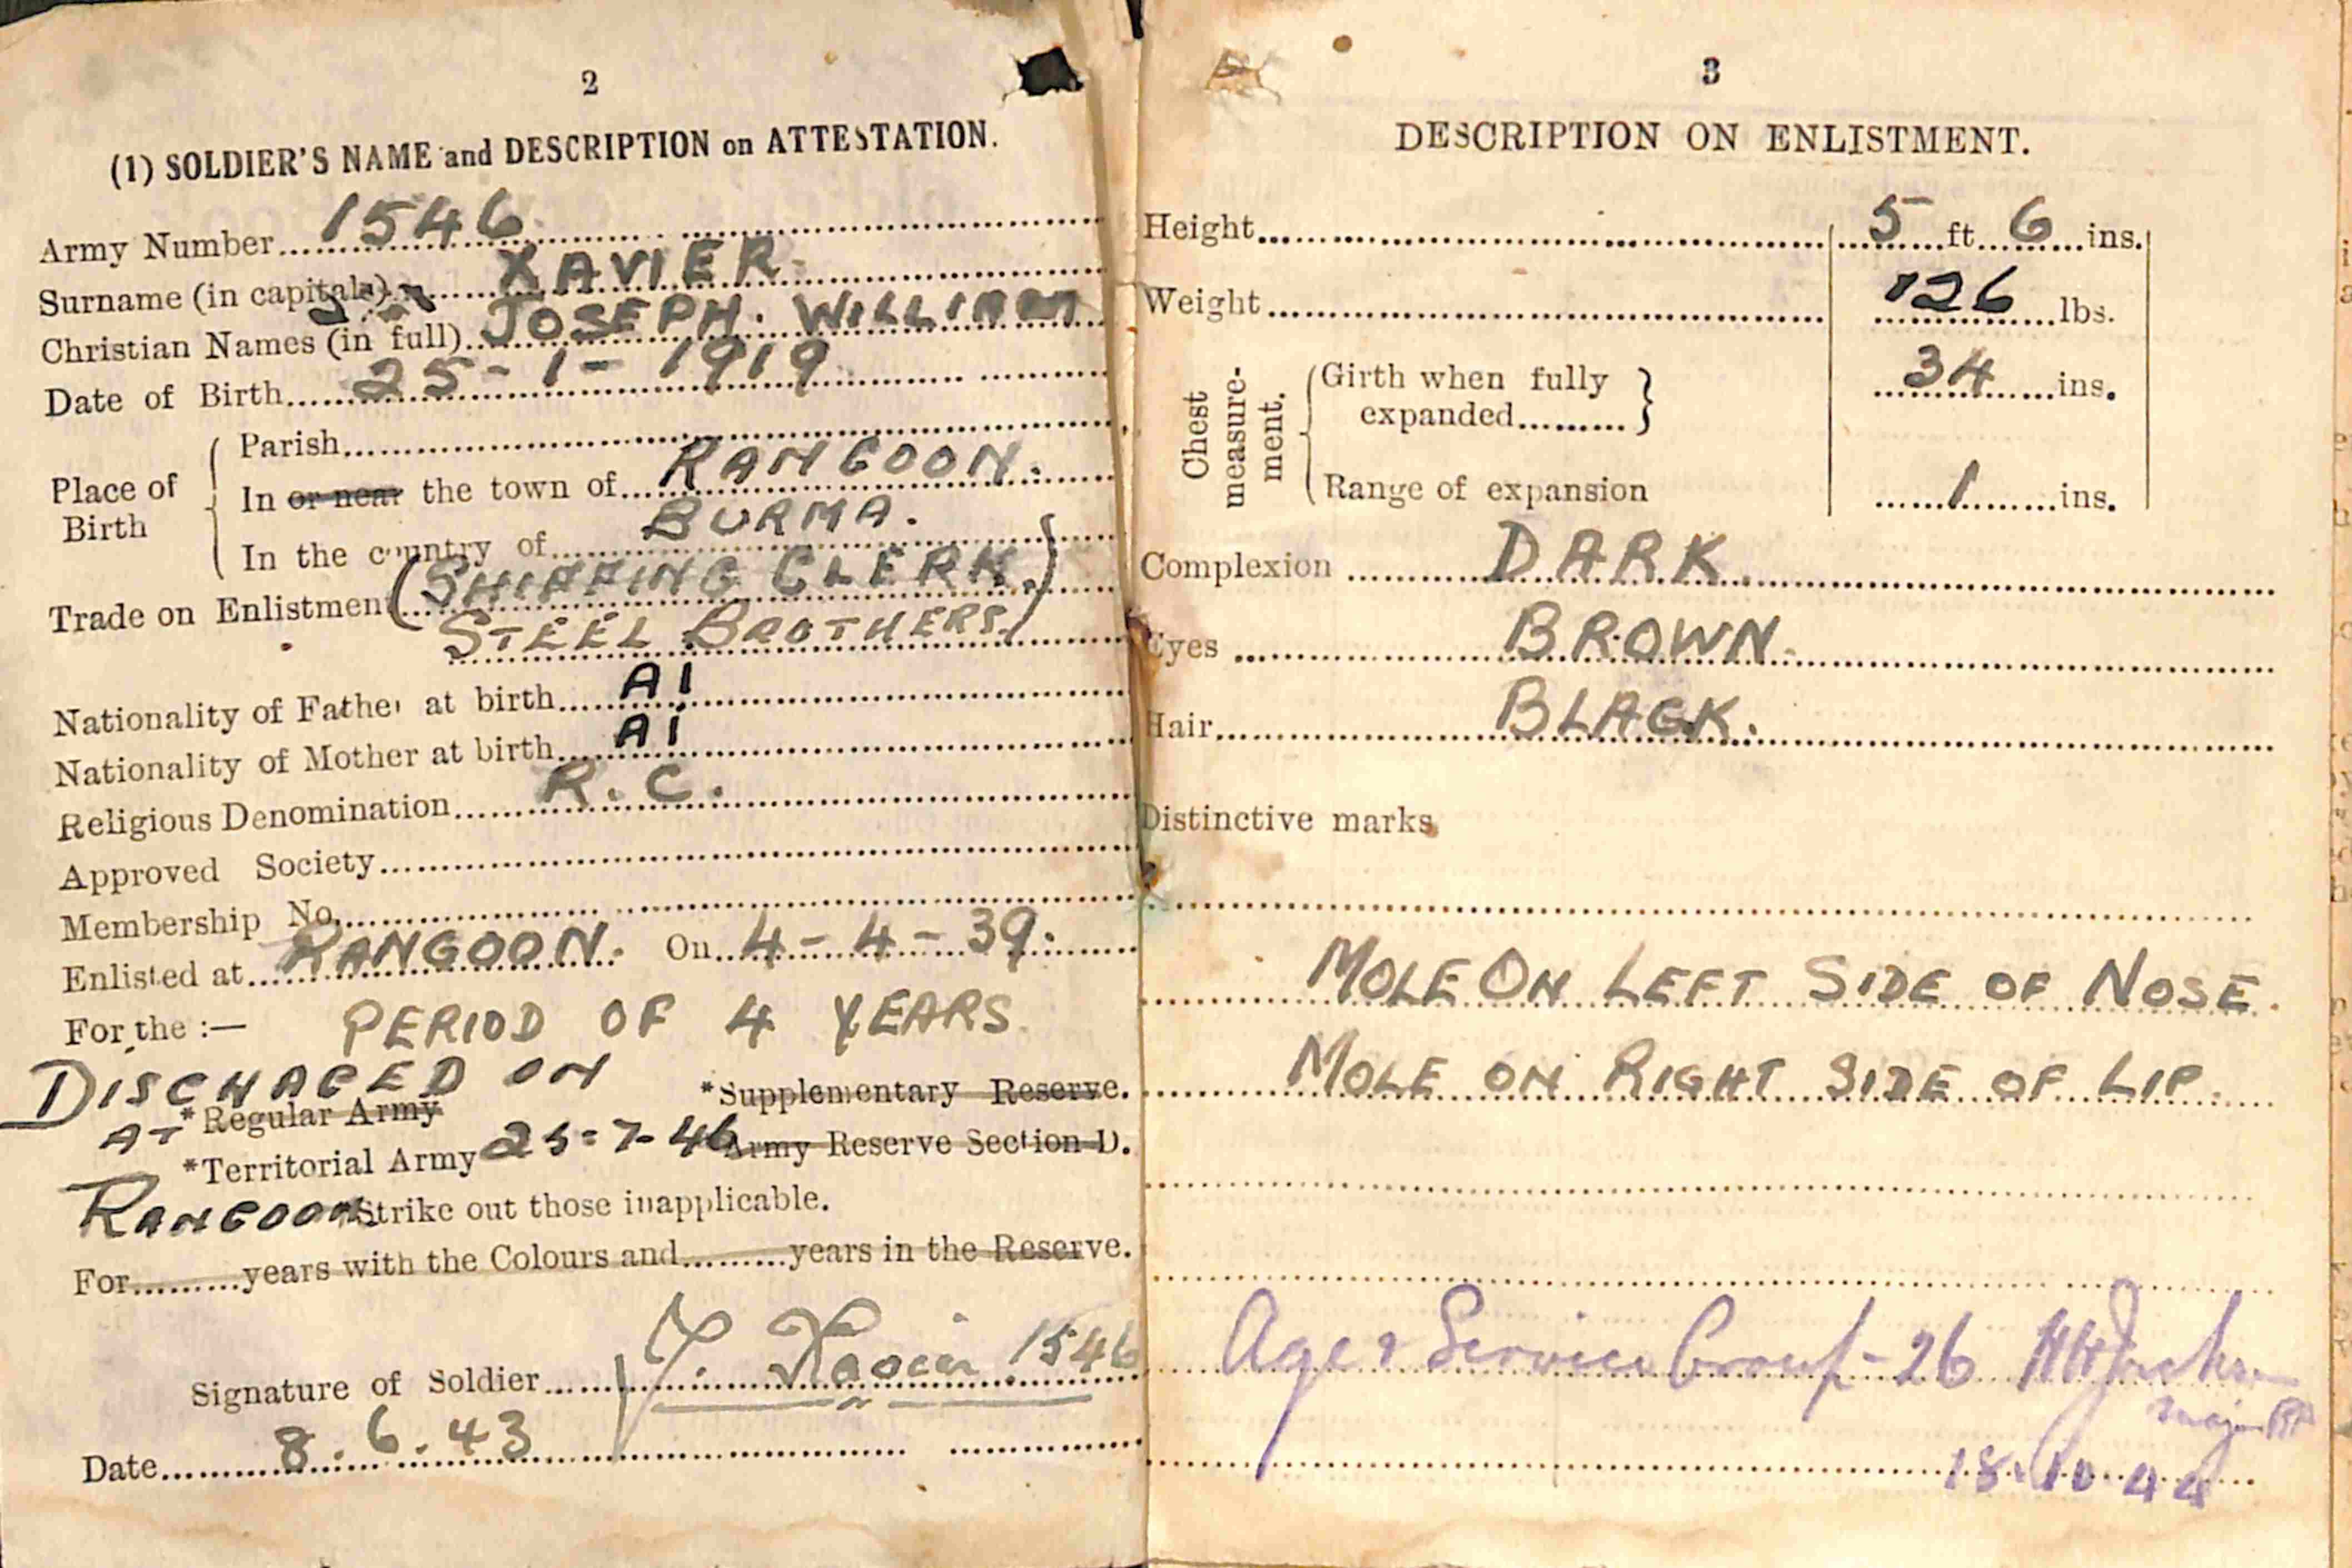 2
(1) SOLDIER'S NAME and DESCRIPTION on ATTESTATION.
Army Number 1546
Surname (in capitals) XAVIER
Christian Names (in full) JOSEPH. WILLIAM
Date of Birth 25-1-1919
Place of Birth
Parish
In or near the town of RANGOON.
In the country of BURMA.
Trade on Enlistment (SHIPPING CLERK.)
STEEL BROTHERS
Nationality of Father at birth AI
Nationality of Mother at birth AI
Religious Denomination R.C.
Approved Society
Membership No.
Enlisted at RANGOON. On 4-4-39.
For the :— PERIOD OF 4 YEARS
DISCHAGED ON
*Regular Army *Supplementary Reserve.
AT
*Territorial Army 25-7-46 Army Reserve Section D.
RANGOON Strike out those inapplicable.
For years with the Colours and years in the Reserve.
Signature of Soldier J. Xavier 1546
Date 8.6.43
3
DESCRIPTION ON ENLISTMENT.
Height 5 ft 6 ins.
Weight 126 lbs.
Chest measurement.
Girth when fully expanded 34 ins.
Range of expansion 1 ins.
Complexion DARK.
Eyes BROWN.
Hair BLACK.
Distinctive marks
MOLE ON LEFT SIDE OF NOSE.
MOLE ON RIGHT SIDE OF LIP.
Age & Service Group - 26
Major
18.10.44